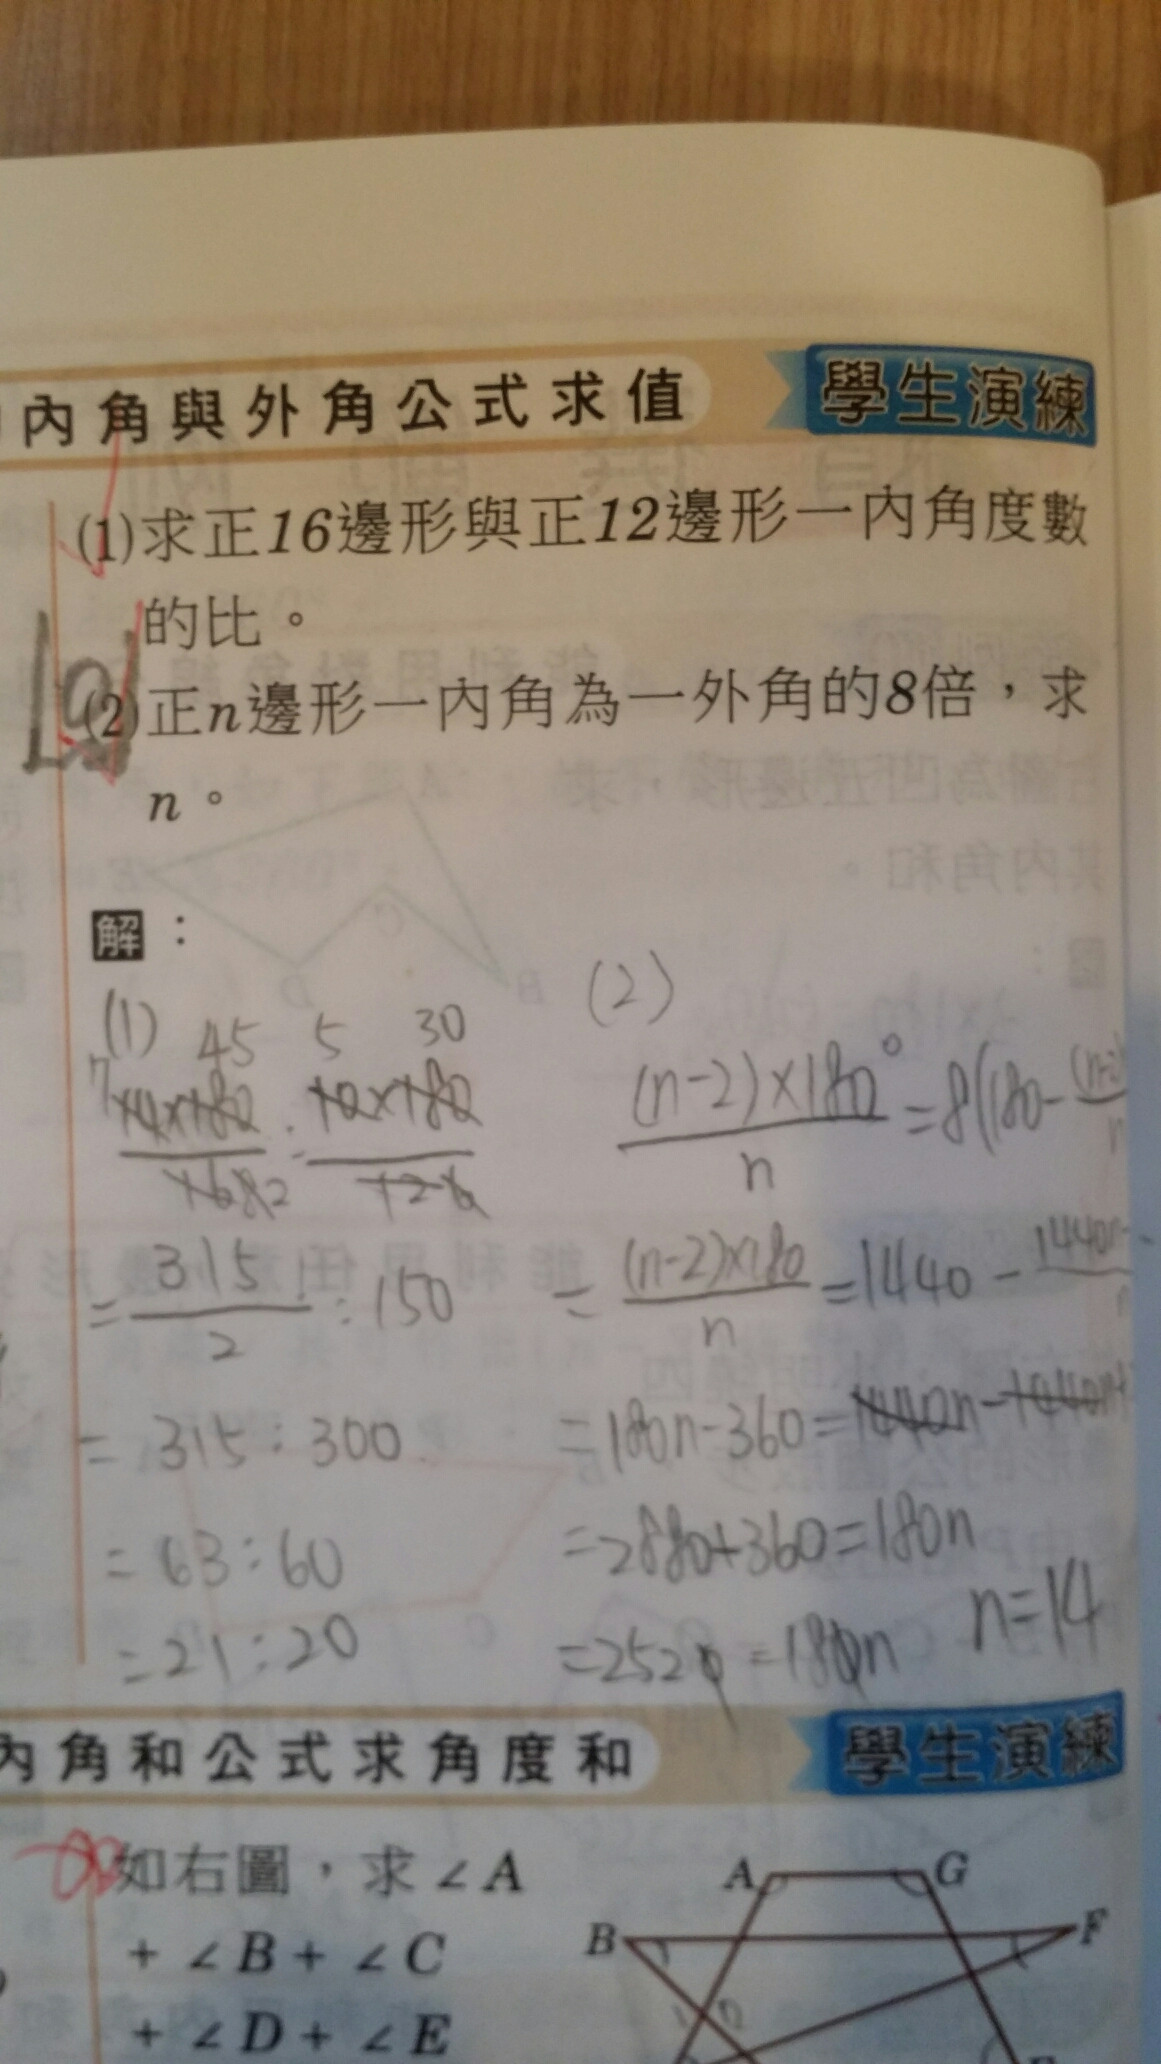 內角與外角公式求值
學生演練
(1)求正16邊形與正12邊形一內角度數
的比。
(2)正n邊形一內角為一外角的8倍，求
n。
解：
(1)
45 5 30
7
14×180 : 10×180
16 8 2 12 6
= 315/2 : 150
= 315 : 300
= 63 : 60
= 21 : 20
(2)
(n-2)×180°/n = 8(180 - (n-2)/n
= (n-2)×180/n = 1440 - 1440n-
= 180n - 360 = 1440n - 1440n+
= 2880+360 = 180n
= 2520 = 180n
n=14
內角和公式求角度和
學生演練
如右圖，求∠A
+ ∠B + ∠C
+ ∠D + ∠E
A G
B F